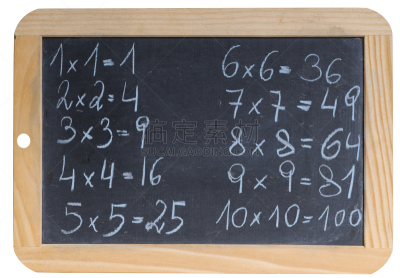 1×1=1
2×2=4
3×3=9
4×4=16
5×5=25
6×6=36
7×7=49
8×8=64
9×9=81
10×10=100
搞定素材